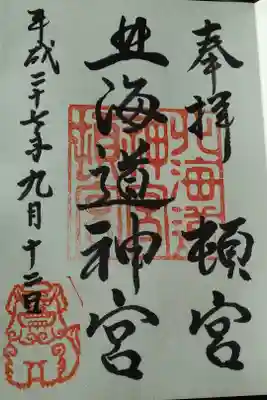 奉拝 頓宮
北海道神宮
平成二十七年九月十二日
北海道神宮頓宮